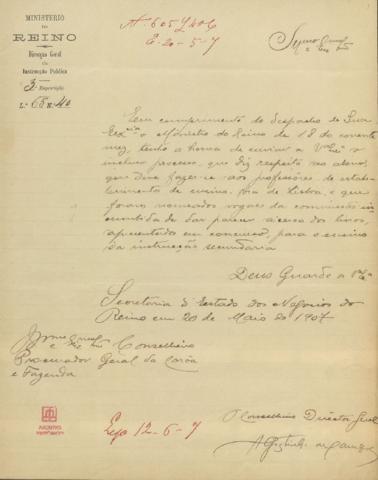 MINISTERIO
DO
REINO
Direcção Geral
da
Instrucção Publica
3.ª Repartição
L.º 63 N.º 40
E. 20-5-7
Em cumprimento do despacho de Sua
Ex.cia o Ministro do Reino de 18 do corrente
mez, tenho a honra de enviar a V.Ex.cia o
incluso processo, que diz respeito ao abono,
que deve fazer-se aos professores de estabe-
lecimentos de ensino, fóra de Lisboa, e que
foram nomeados vogaes da commissão in-
cumbida de dar parecer ácerca dos livros,
apresentados em concurso, para o ensino
da instrucção secundaria
Deus Guarde a V.Ex.cia
Secretaria d'Estado dos Negocios do
Reino em 20 de Maio de 1907
Conselheiro
Procurador Geral da Corôa
e Fazenda
O Conselheiro Director Geral
Exp 12-6-7
ARQUIVO